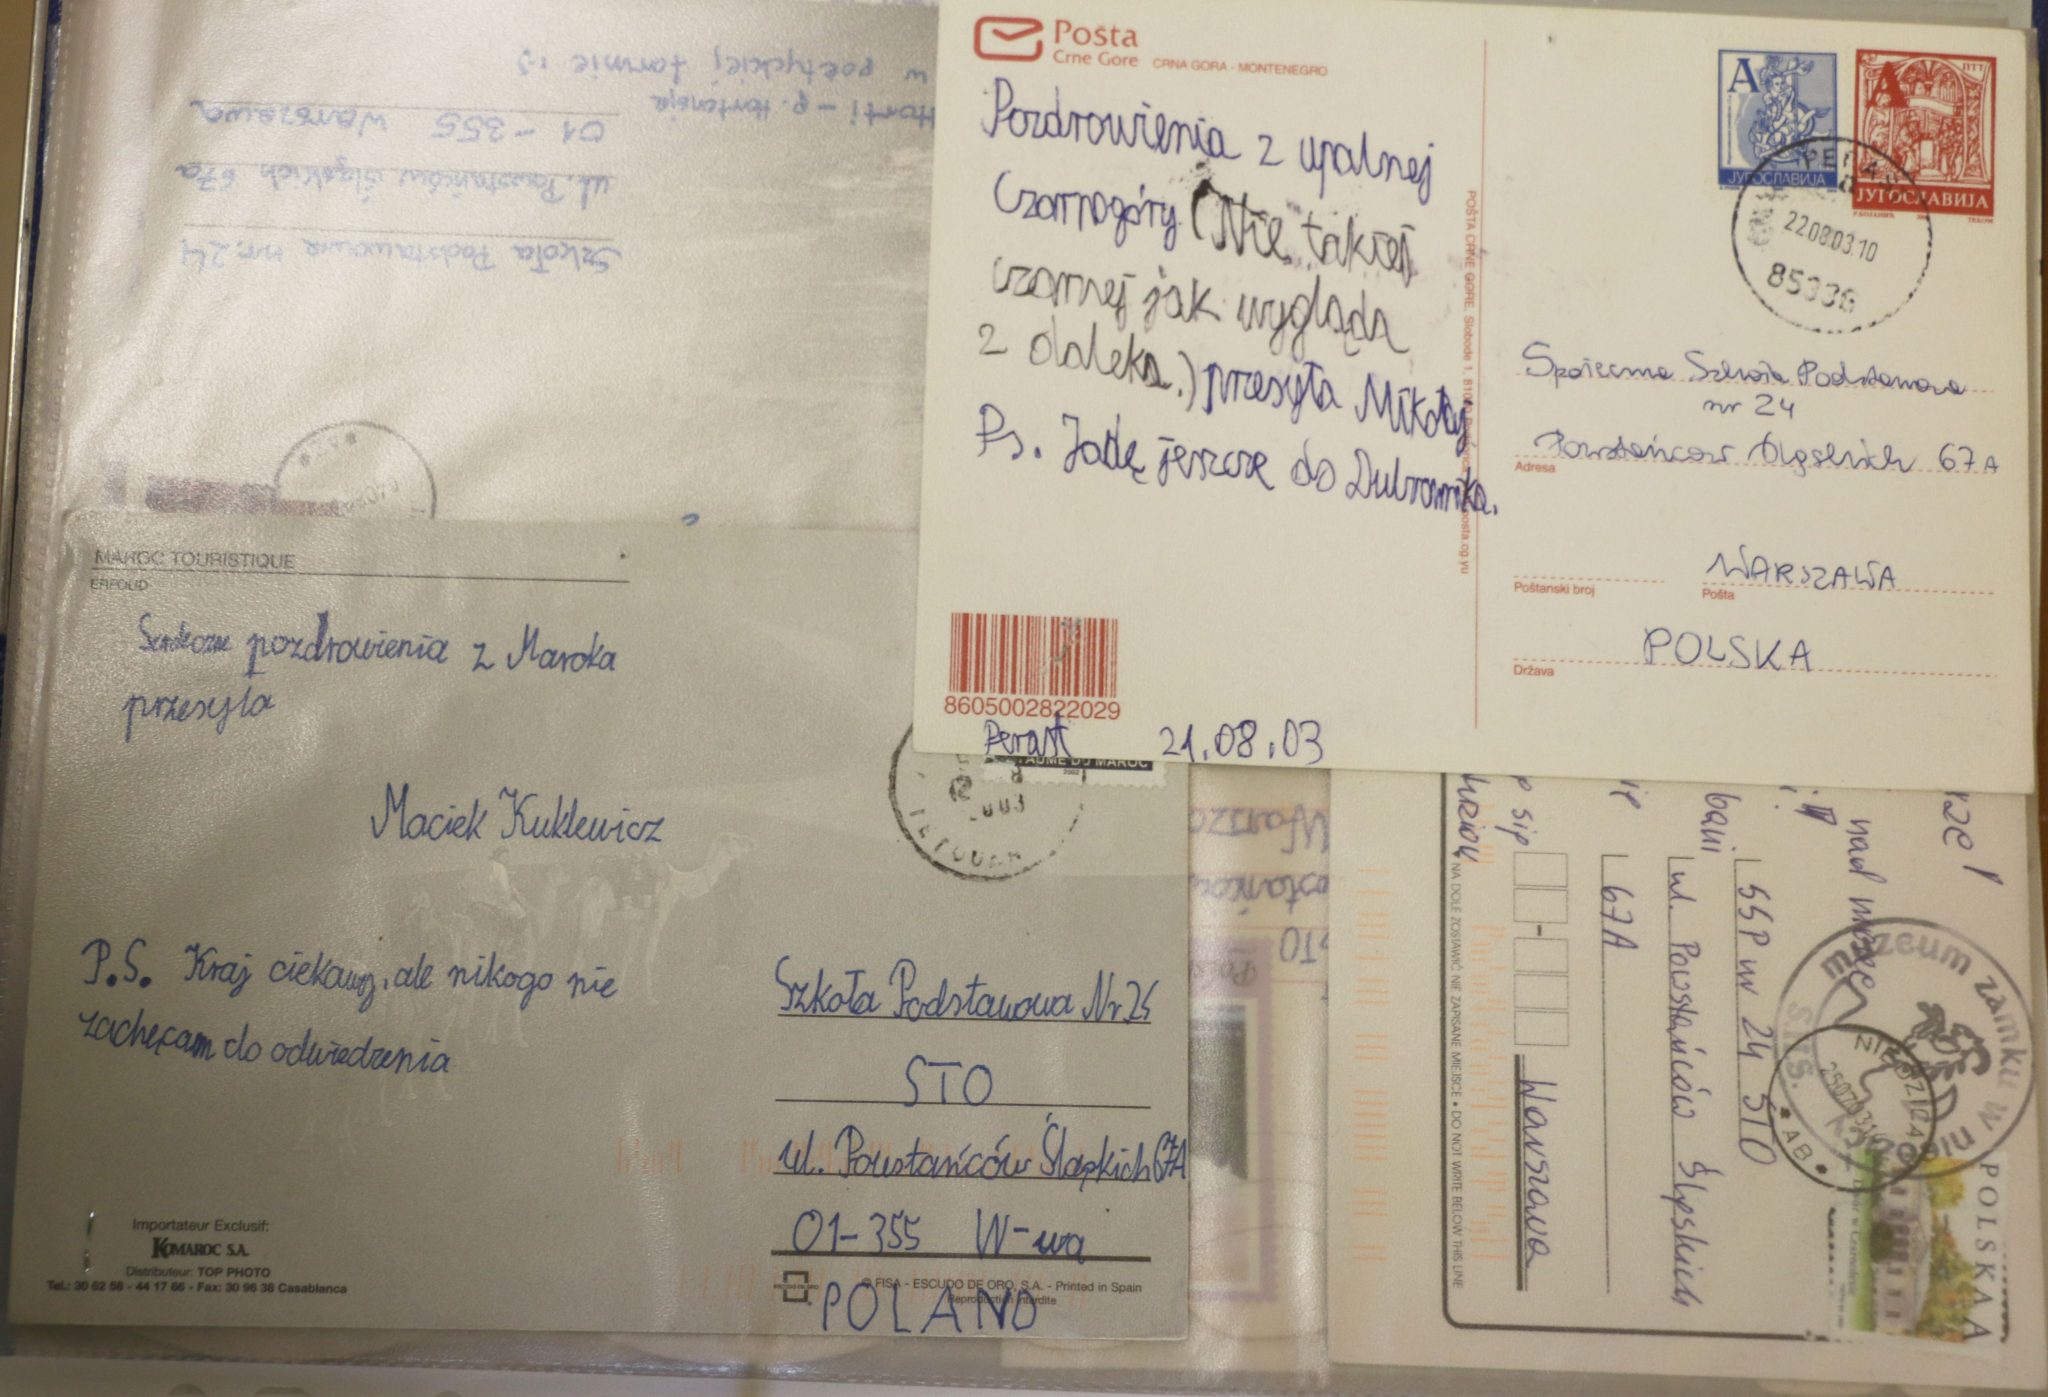 Pošta
Crne Gore CRNA GORA - MONTENEGRO
Pozdrowienia z upalnej
Czarnogóry (Nie takiej
czarnej jak wygląda
z daleka.) przesyła Mikołaj
Ps. Jadę jeszcze do Dubrownika.
8605002822029
Perast 21.08.03
POŠTA CRNE GORE Slobode 1, 81000
posta.cg.yu
A
ЈУГОСЛАВИЈА
A
ПТТ
ЈУГОСЛАВИЈА
22.08.03.10
85336
Społeczna Szkoła Podstawowa
nr 24
Powstańców Śląskich 67A
Adresa
WARSZAWA
Poštanski broj Pošta
POLSKA
Država
w poetyckiej formie :)
Horti - p. Hortensja
01-355 Warszawa
ul. Powstańców Śląskich 67a
Szkoła Podstawowa nr. 24
MAROC TOURISTIQUE
ERFOUD
Serdeczne pozdrowienia z Maroka
przesyła
Maciek Kuklewicz
P.S. Kraj ciekawy, ale nikogo nie
zachęcam do odwiedzenia
DU MAROC
2002
TETOUAN
Szkoła Podstawowa Nr 24
STO
ul. Powstańców Śląskich 67A
01-355 W-wa
POLAND
Importateur Exclusif:
KOMAROC S.A.
Distributeur: TOP PHOTO
Tel.: 30 62 58 - 44 17 66 - Fax: 30 96 38 Casablanca
© FISA - ESCUDO DE ORO, S.A. - Printed in Spain
Reproduction interdite
STO
nad morze
SSP nr 24 STO
ul. Powstańców Śląskich
67A
Warszawa
NA DOLE ZOSTAWIĆ NIE ZAPISANE MIEJSCE • DO NOT WRITE BELOW THIS LINE
muzeum zamku w niedzicy
S.H.S.
NIEDZICA
AB
POLSKA